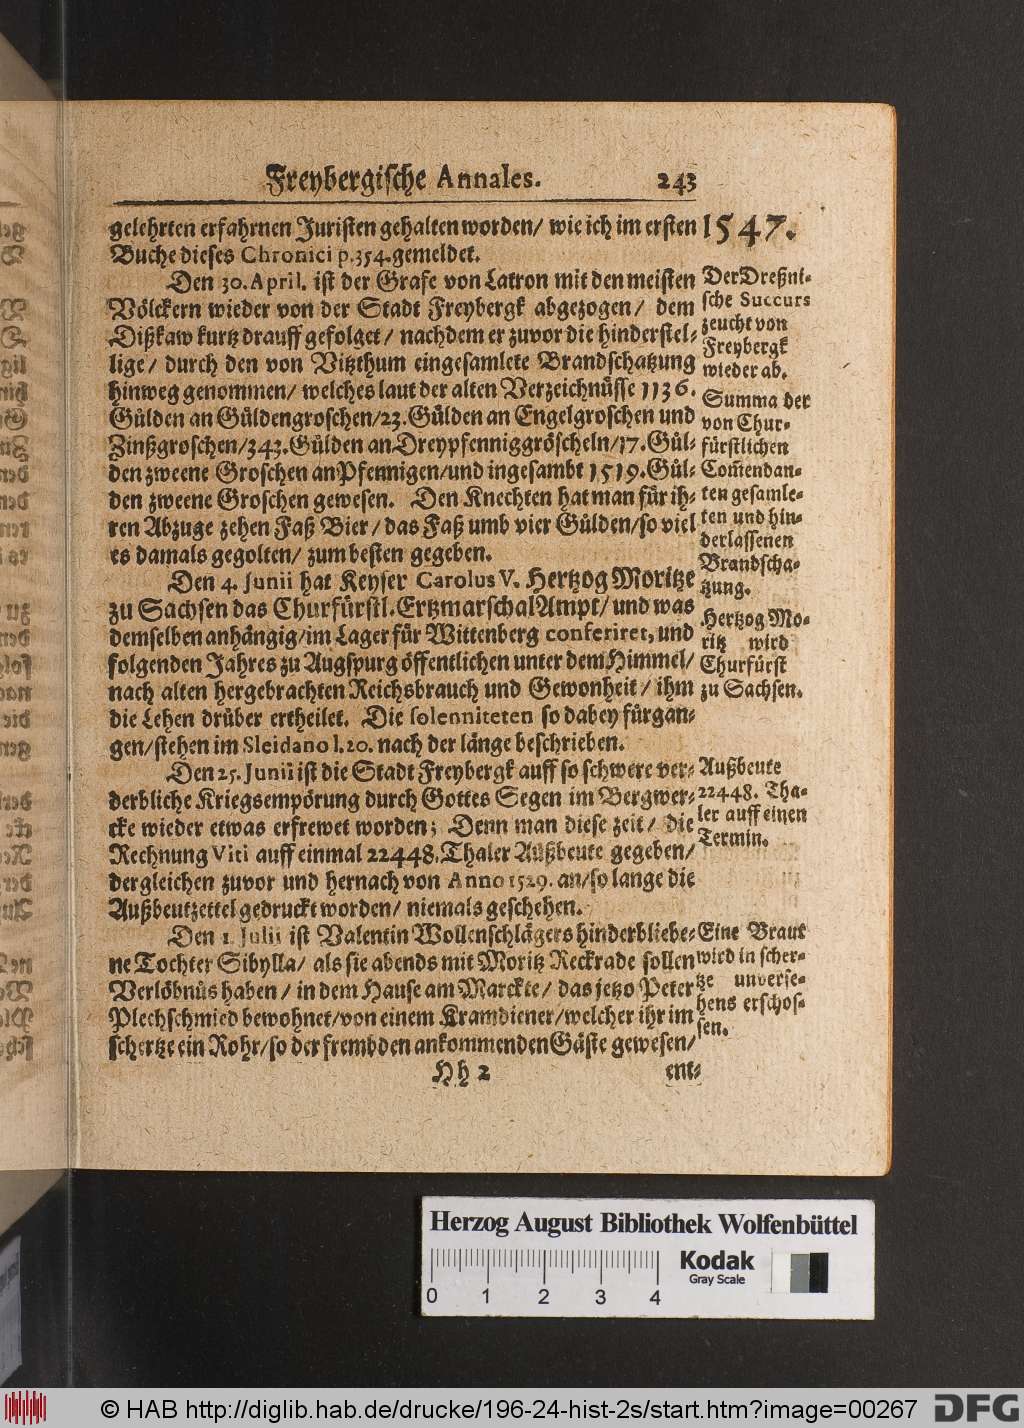 Freybergische Annales. 243
gelehrten erfahrnen Juristen gehalten worden/ wie ich im ersten
Buche dieses Chronici p.354. gemeldet.
Den 30. April. ist der Grafe von Latron mit den meisten
Völckern wieder von der Stadt Freybergk abgezogen/ dem
Dißkaw kurtz drauff gefolget/ nachdem er zuvor die hinderstel-
lige/ durch den von Vitzthum eingesamlete Brandschatzung
hinweg genommen/ welches laut der alten Verzeichnüsse 1136.
Gülden an Güldengroschen/23. Gülden an Engelgroschen und
Zinßgroschen/343. Gülden an Dreypfenniggröscheln/17. Gül-
den zweene Groschen an Pfennigen/und ingesambt 1519. Gül-
den zweene Groschen gewesen. Den Knechten hat man für ih-
ren Abzuge zehen Faß Bier/ das Faß umb vier Gülden/so viel
es damals gegolten/ zum besten gegeben.
Den 4. Junii hat Keyser Carolus V. Hertzog Moritze
zu Sachsen das Churfürstl. Ertzmarschal Ampt/ und was
demselben anhängig/im Lager für Wittenberg conferiret, und
folgenden Jahres zu Augspurg öffentlichen unter dem Himmel/
nach alten hergebrachten Reichsbrauch und Gewonheit/ ihm
die Lehen drüber ertheilet. Die solenniteten so dabey fürgan-
gen/stehen im Sleidano l.20. nach der länge beschrieben.
Den 25. Junii ist die Stadt Freybergk auff so schwere ver-
derbliche Kriegsempörung durch Gottes Segen im Bergwer-
cke wieder etwas erfrewet worden; Denn man diese zeit/ die
Rechnung Viti auff einmal 22448. Thaler Außbeute gegeben/
dergleichen zuvor und hernach von Anno 1529. an/so lange die
Außbeutzettel gedruckt worden/ niemals geschehen.
Den 1. Julii ist Valentin Wollenschlägers hinderbliebe-
ne Tochter Sibylla/ als sie abends mit Moritz Reckrade sollen
Verlöbnüs haben/ in dem Hause am Marckte/ das jetzo Peter
Plechschmied bewohnet/von einem Kramdiener/welcher ihr im
schertze ein Rohr/so der frembden ankommenden Gäste gewesen/
Hh 2 ent-
1547.
Der Dreßni-
sche Succurs
zeucht von
Freybergk
wieder ab.
Summa der
von Chur-
fürstlichen
Com̃endan-
ten gesamle-
ten und hin-
derlassenen
Brandscha-
tzung.
Hertzog Mo-
ritz wird
Churfürst
zu Sachsen.
Außbeute
22448. Tha-
ler auff einen
Termin.
Eine Braut
wird in scher-
tze unverse-
hens erschos-
sen.
Herzog August Bibliothek Wolfenbüttel
Kodak
Gray Scale
0 1 2 3 4
© HAB http://diglib.hab.de/drucke/196-24-hist-2s/start.htm?image=00267
DFG